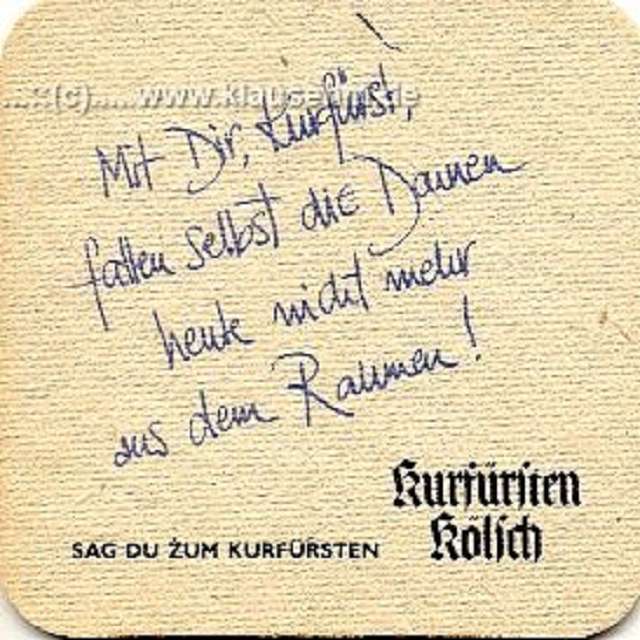 Mit Dir, Kurfürst,
fallen selbst die Damen
heute nicht mehr
aus dem Rahmen!
Kurfürsten
Kölsch
SAG DU ZUM KURFÜRSTEN